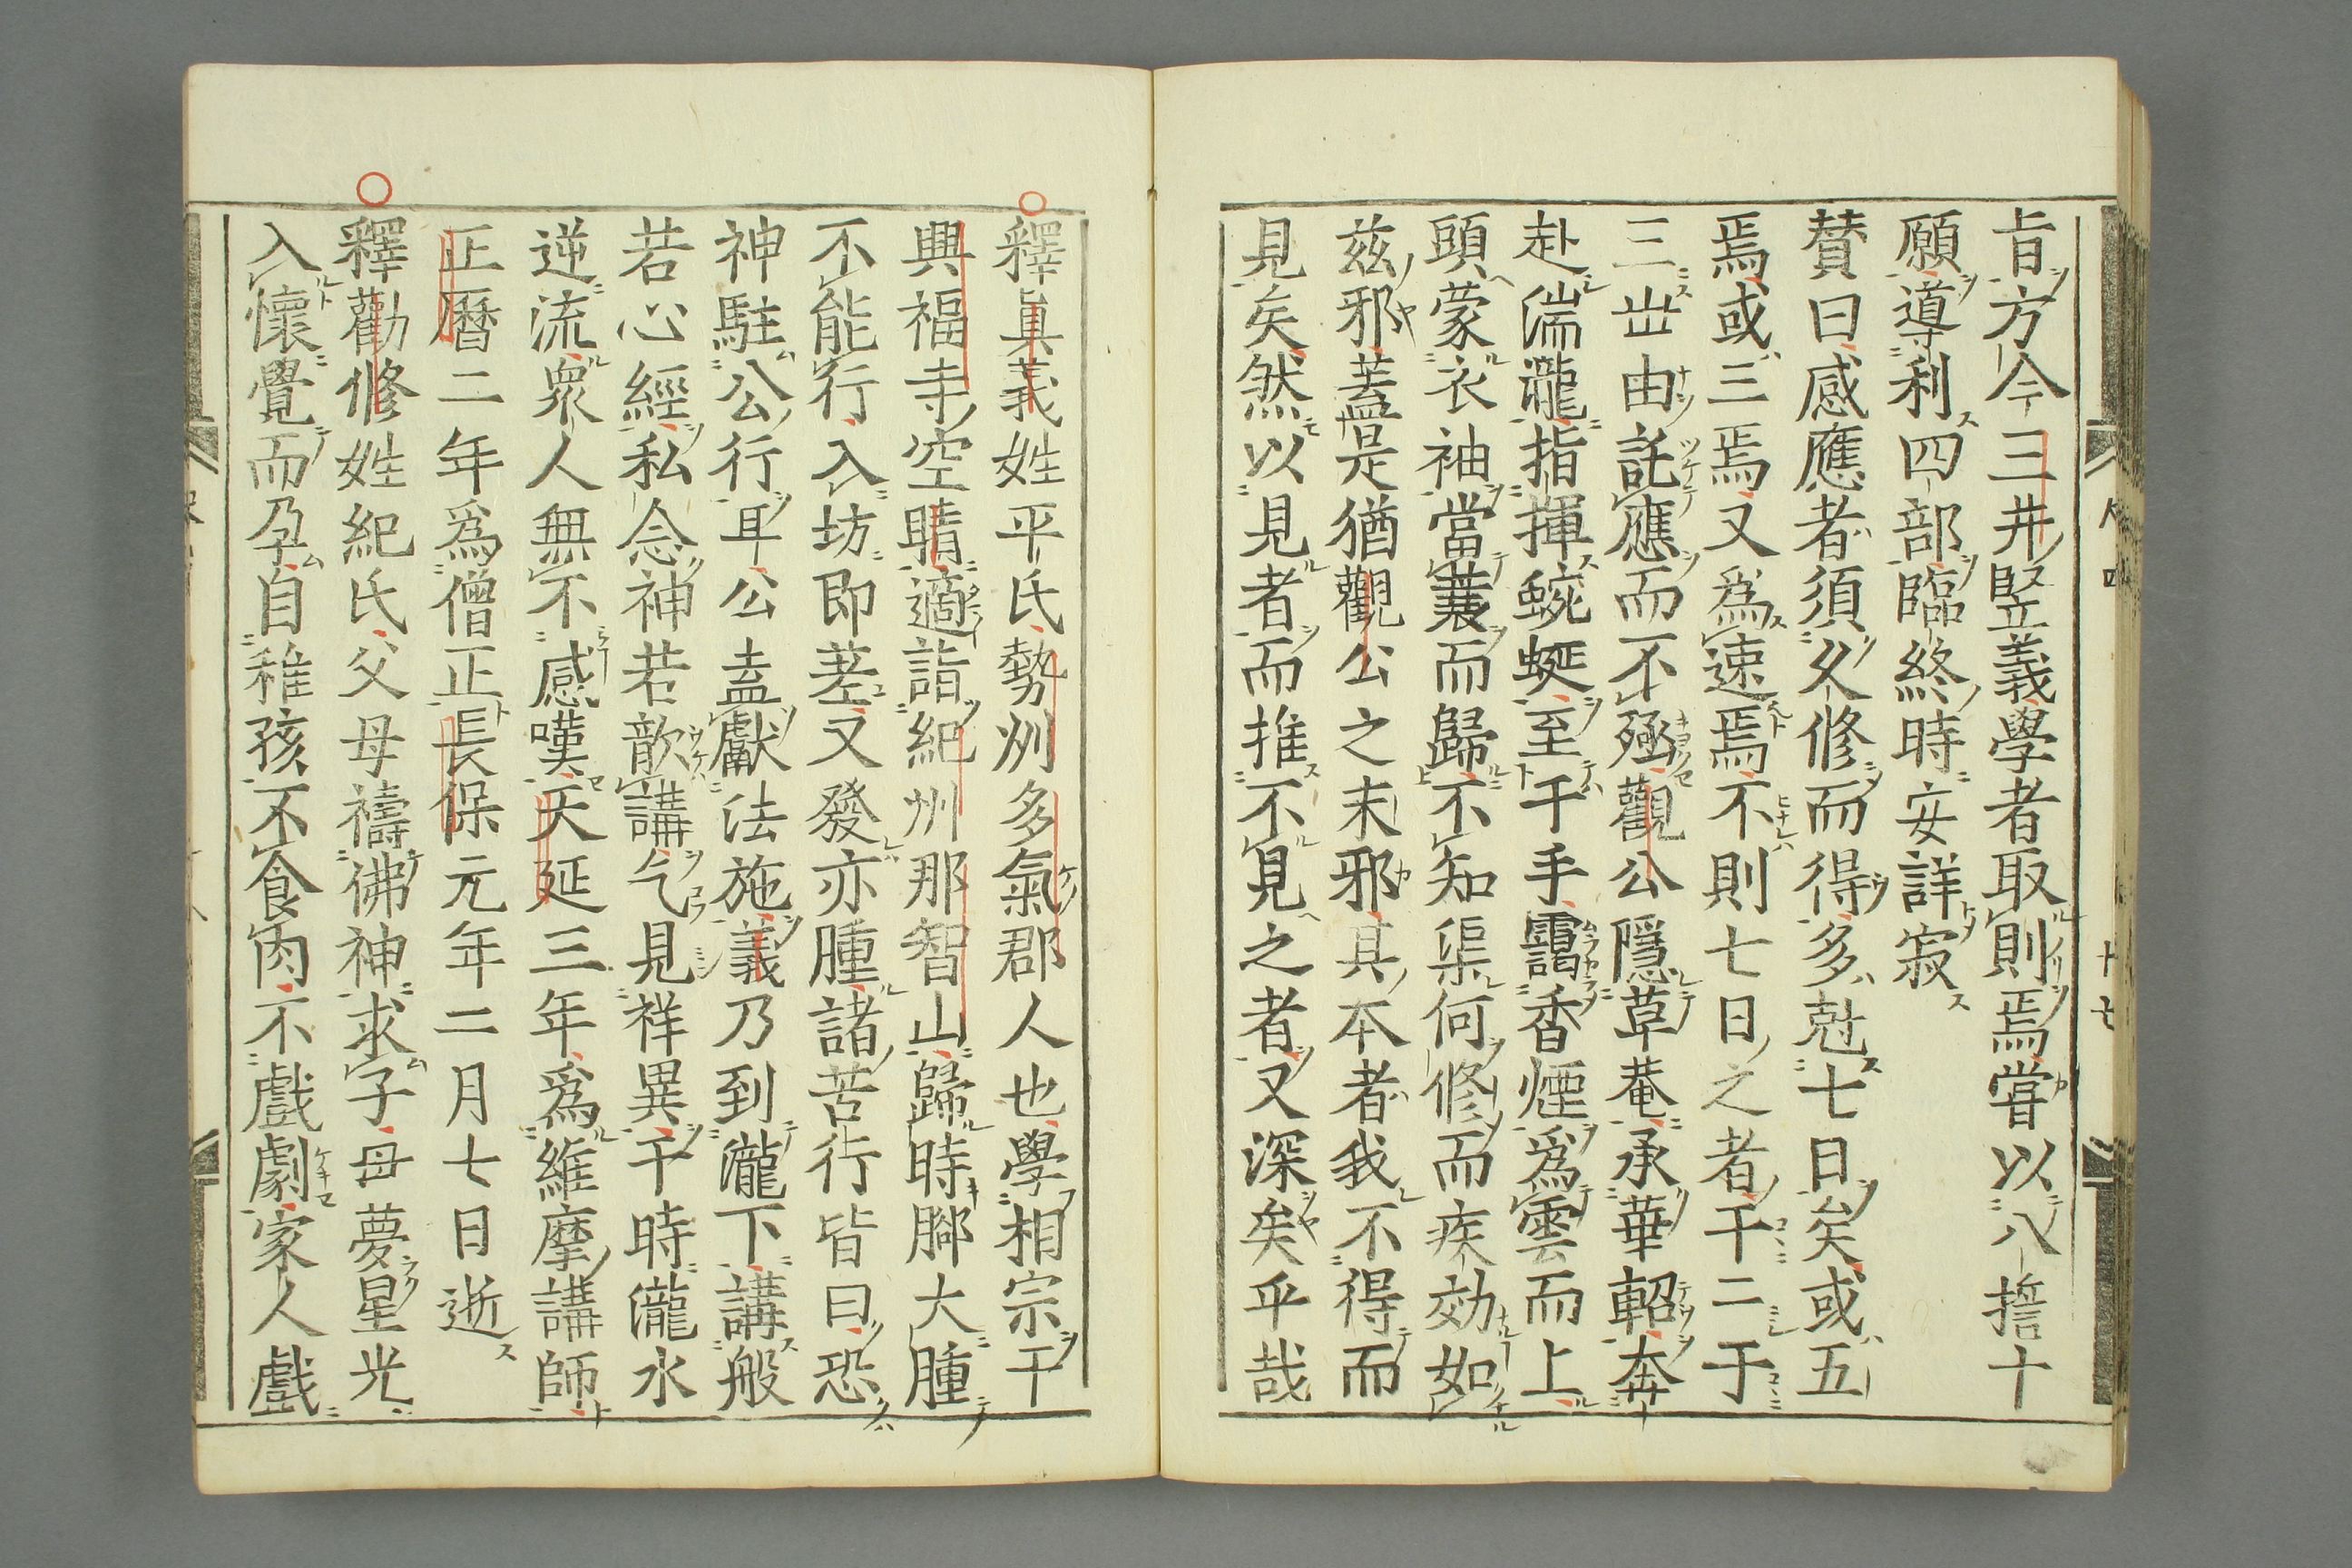 旨方今三井竪義學者取則焉嘗以八擔十
願導利四部臨終時安詳寂
賛曰感應者須久修而得多尅七日矣或五
焉或三焉又爲速焉不則七日之者干二于
三世由託應而不殛觀公隱草菴承華軺奔
赴湍瀧指揮蜿蜒至千手靄香煙爲雲而上
頭蒙衣袖當蓑而歸不知渠何修而疾効如
兹邪蓋是猶觀公之末邪其本者我不得而
見矣然以見者而推不見之者又深矣乎哉
釋眞義姓平氏勢州多氣郡人也學相宗于
興福寺空晴適詣紀州那智山歸時脚大腫
不能行入坊即差又發亦腫諸苦行皆曰恐
神駐公行耳公盍獻法施義乃到瀧下講般
若心經私念神若歆講乞見祥異于時瀧水
逆流衆人無不感嘆天延三年爲維摩講師
正曆二年爲僧正長保元年二月七日逝
釋勸修姓紀氏父母禱佛神求子母夢星光
入懷覺而孕自稚孩不食肉不戲劇家人戲